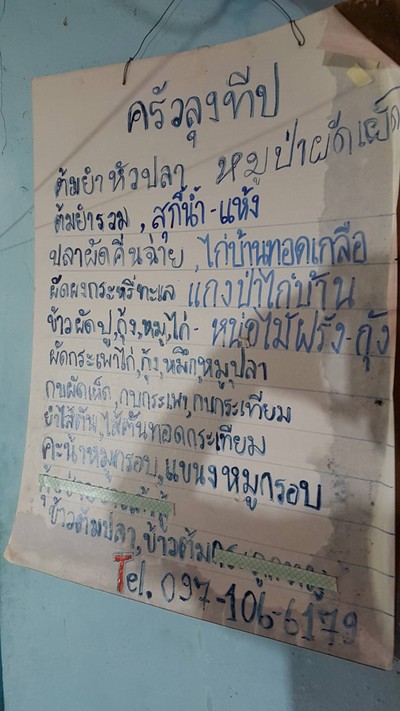 ครัวลุงทีป
ต้มยำหัวปลา หมูป่าผัดเผ็ด
ต้มยำรวม, สุกี้น้ำ-แห้ง
ปลาผัดคื่นฉ่าย, ไก่บ้านทอดเกลือ
ผัดผงกระหรี่ทะเล แกงป่าไก่บ้าน
ข้าวผัดปู, กุ้ง, หมู, ไก่- หน่อไม้ฝรั่ง-กุ้ง
ผัดกระเพาไก่, กุ้ง, หมึก, หมู, ปลา
กบผัดเผ็ด, กบกระเพา, กบกระเทียม
ยำไส้ตัน, ไส้ตันทอดกระเทียม
คะน้าหมูกรอบ, แขนงหมูกรอบ
ข้าวต้มปลา, ข้าวต้ม
Tel. 097-106-6179